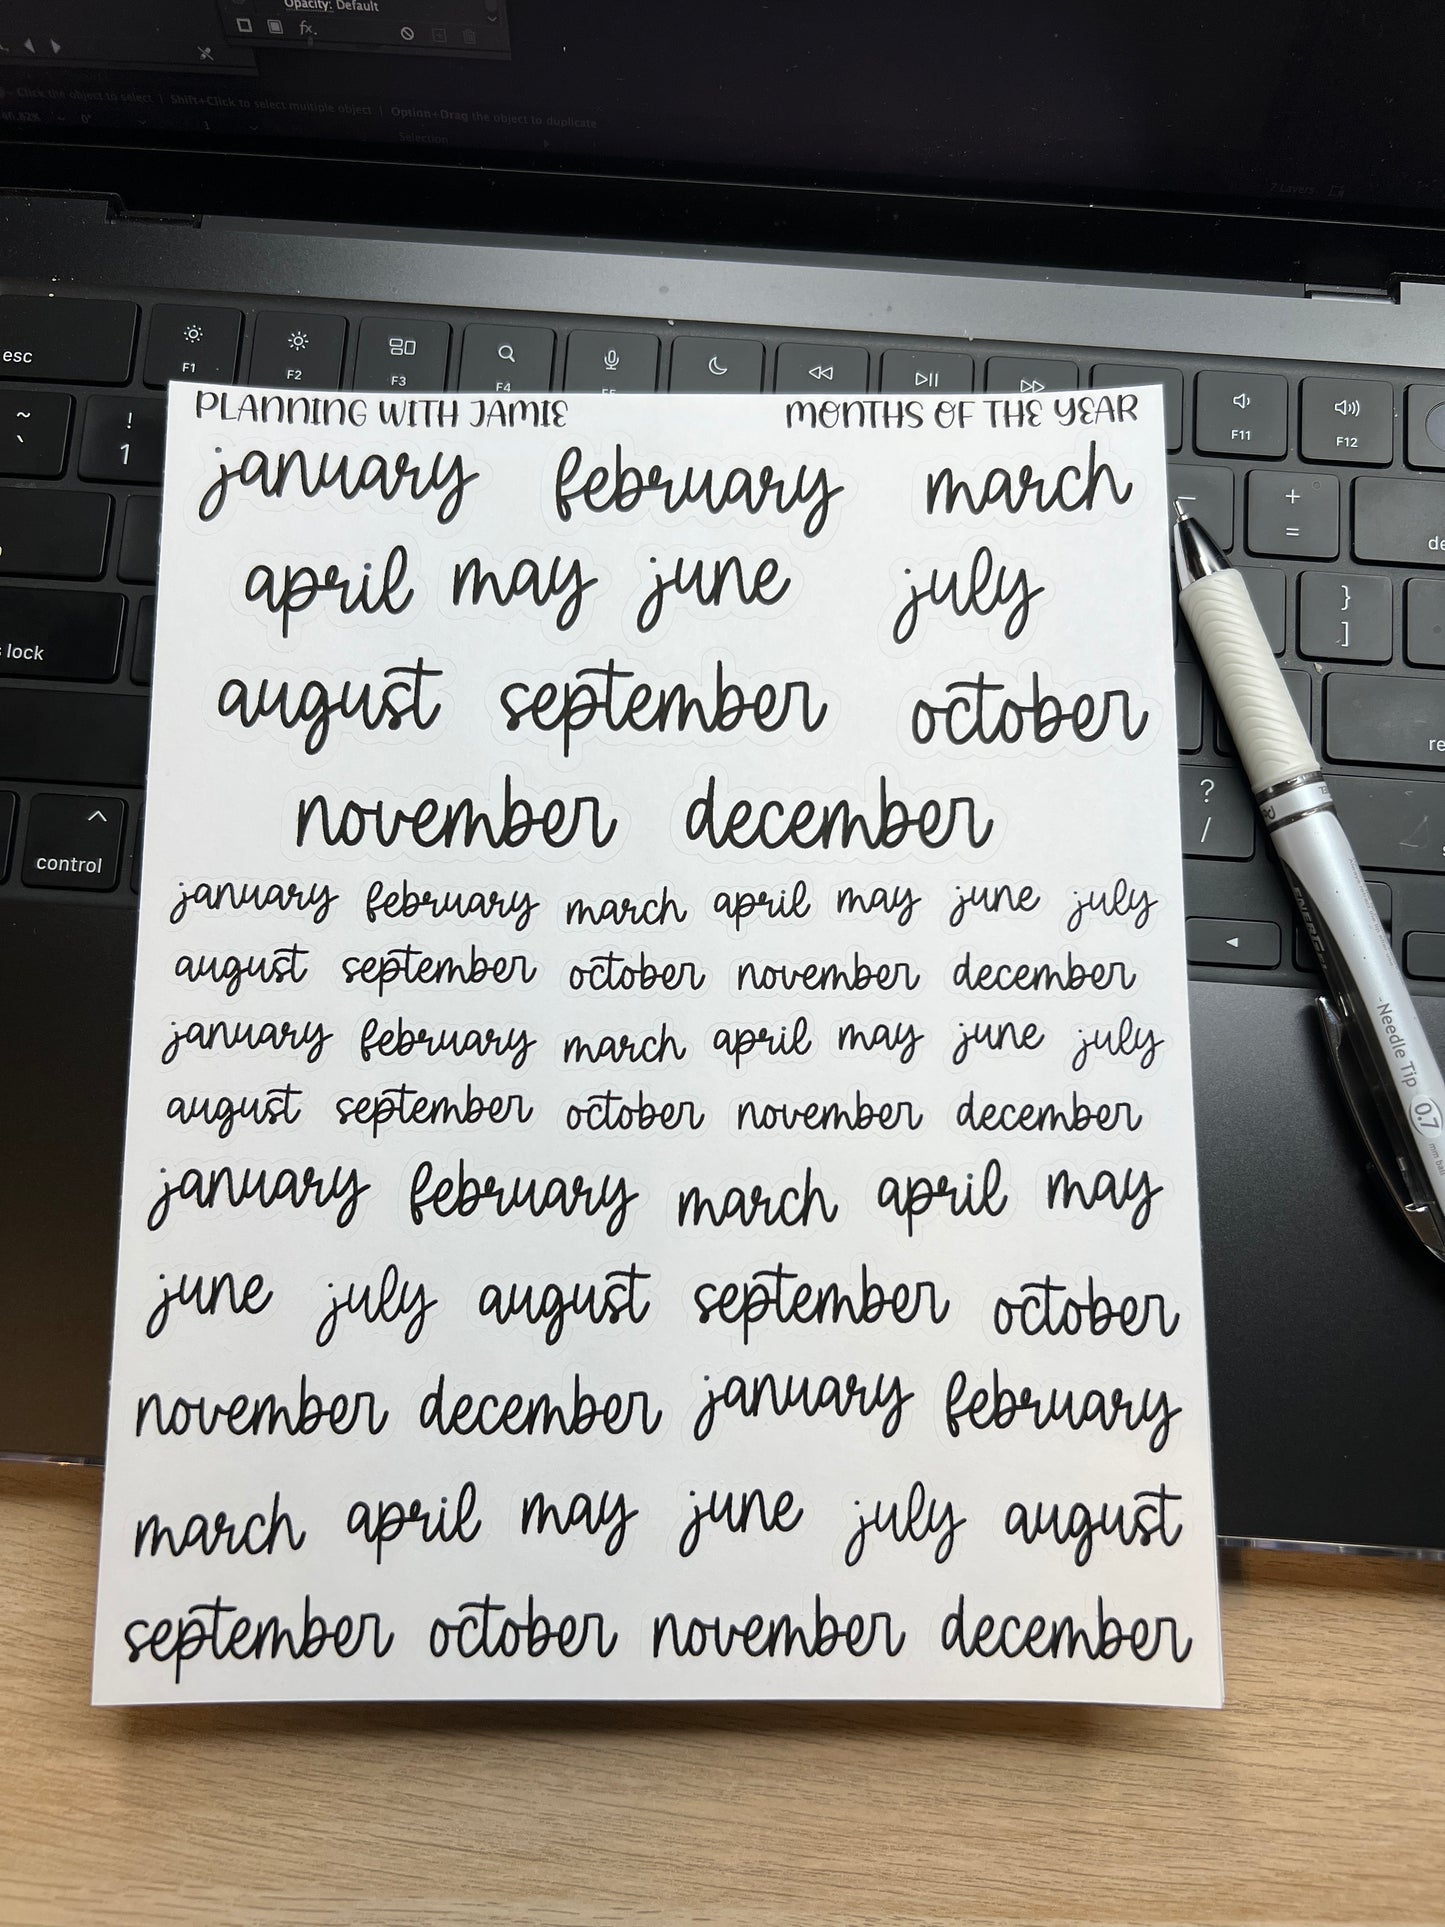 Opacity: Default
fx.
Click the object to select | Shift+Click to select multiple object | Option+Drag the object to duplicate
0°
1
Selection
7 Layers
esc
F1
F2
F3
F4
F11
F12
~
`
!
1
+
=
}
]
lock
?
/
control
PLANNING WITH JAMIE
MONTHS OF THE YEAR
january february march
april may june july
august september october
november december
january february march april may june july
august september october november december
january february march april may june july
august september october november december
january february march april may
june july august september october
november december january february
march april may june july august
september october november december
Needle Tip 0.7